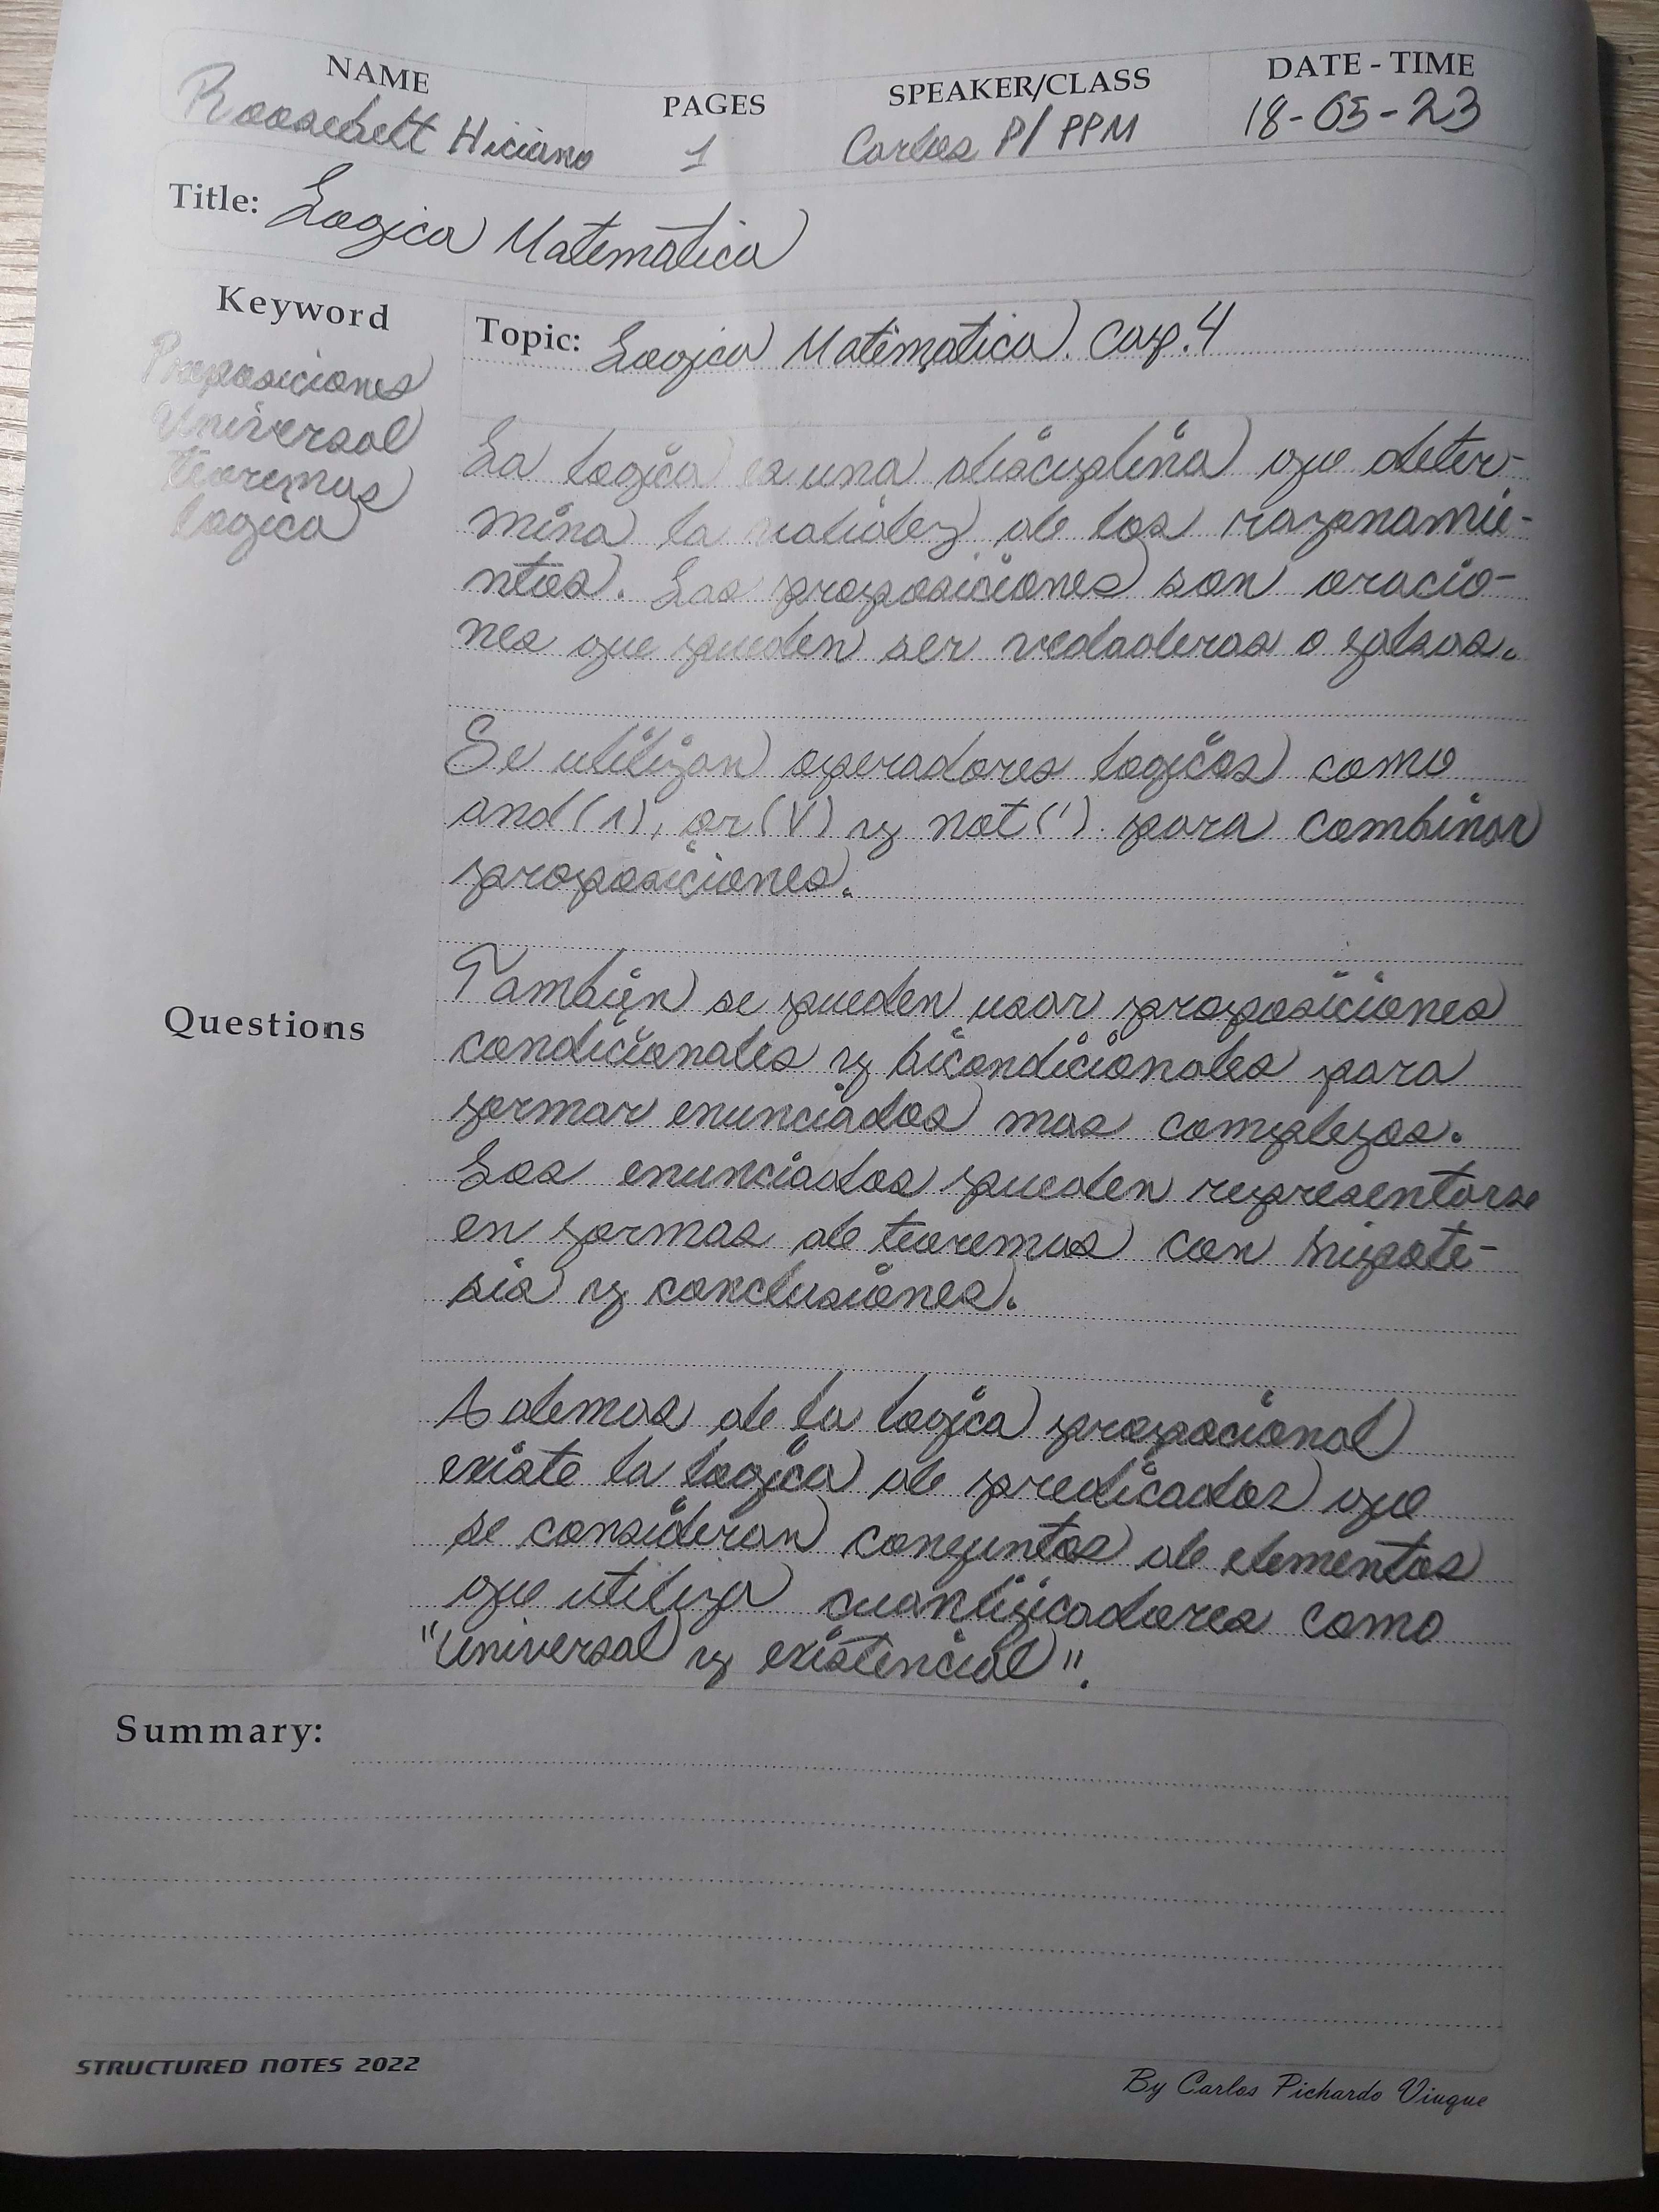 NAME
PAGES
SPEAKER/CLASS
DATE - TIME
Roosebelt Hiciano
1
Carlos P/ PPM
18-05-23
Title: Logica Matematica
Keyword
Proposiciones
Universal
teoremas
logica
Topic: Logica Matematica. Cap. 4
La logica es una disciplina que deter-
mina la validez de los razonamie-
ntos. Las proposiciones son oracio-
nes que pueden ser vedaderas o falsas.
Se utilizan operadores logicos como
and (∧), or (V) y not (') para combinar
proposiciones.
Questions
Tambien se pueden usar proposiciones
condicionales y bicondicionales para
formar enunciados mas complejos.
Los enunciados pueden representarse
en formas de teoremas con hipote-
sis y conclusiones.
Ademas de la logica propocional
existe la logica de predicados que
se consideran conjuntos de elementos
que utiliza cuantificadores como
"Universal y existencial".
Summary:
STRUCTURED NOTES 2022
By Carlos Pichardo Viuque